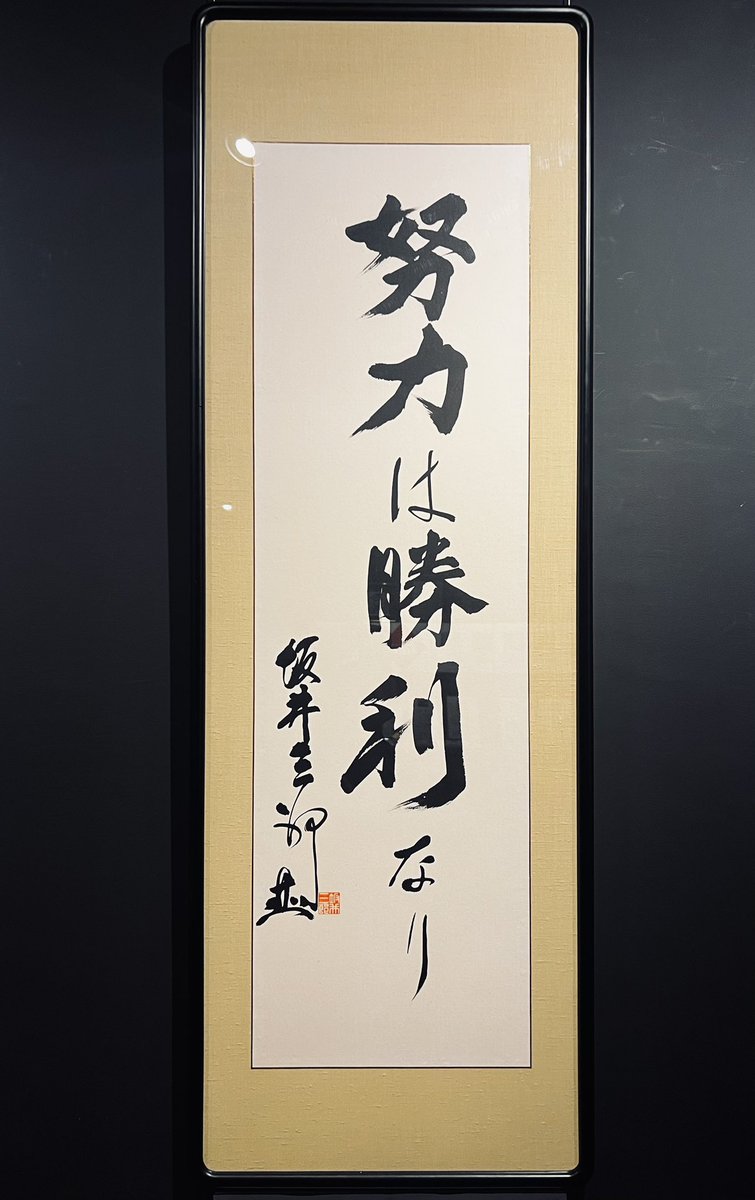 努力は勝利なり
坂井三郎